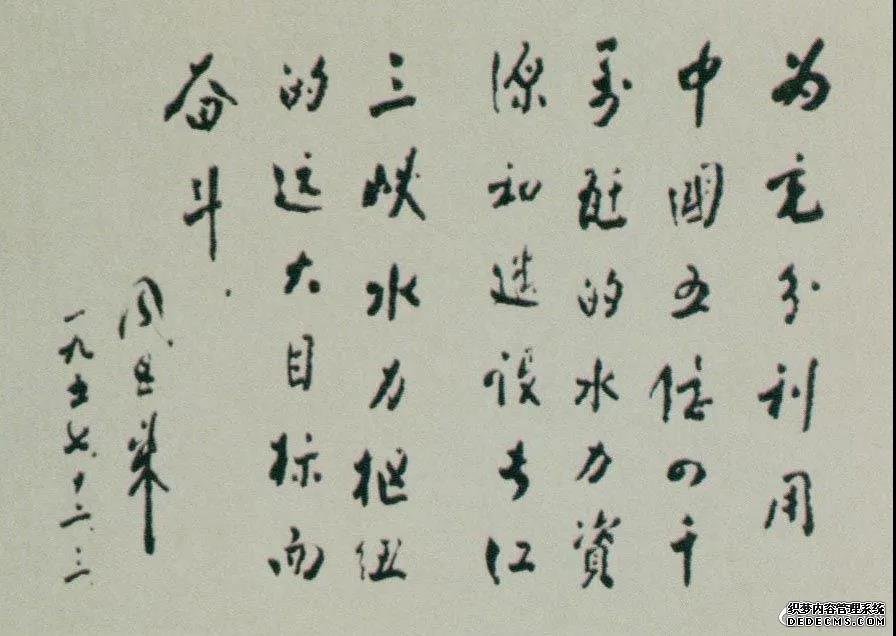 为充分利用
中國五億四千
萬瓩的水力資
源和建設长江
三峡水力枢纽
的远大目标而
奋斗.
周恩来
一九五七.十二.三.
织梦内容管理系统
DEDECMS.COM